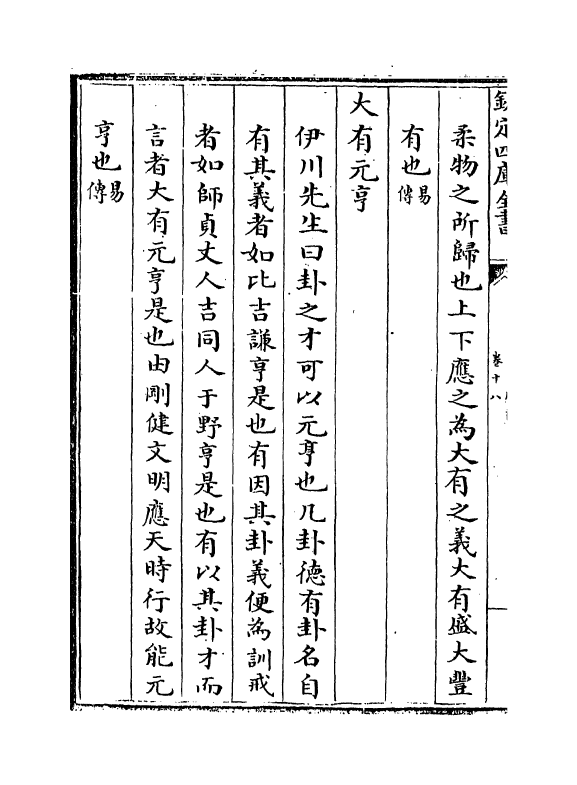 欽定四庫全書
卷十八
柔物之所歸也上下應之為大有之義大有盛大豐
有也易傳
大有元亨
伊川先生曰卦之才可以元亨也凡卦德有卦名自
有其義者如比吉謙亨是也有因其卦義便為訓戒
者如師貞丈人吉同人于野亨是也有以其卦才而
言者大有元亨是也由剛健文明應天時行故能元
亨也易傳